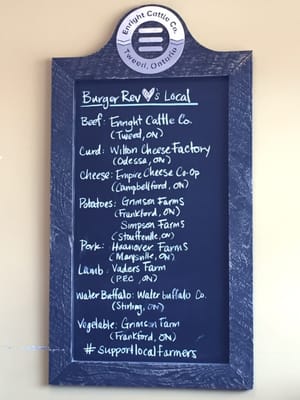 Enright Cattle Co.
Tweed, Ontario
Burger Rev ♥s Local
Beef: Enright Cattle Co.
(Tweed, ON)
Curd: Wilton Cheese Factory
(Odessa, ON)
Cheese: Empire Cheese Co-op
(Campbellford, ON)
Potatoes: Grimson Farms
(Frankford, ON)
Simpson Farms
(Stouffville, ON)
Pork: Haanover Farms
(Marysville, ON)
Lamb: Vaders Farm
(PEC, ON)
Water Buffalo: Water buffalo Co.
(Stirling, ON)
Vegetable: Grimson Farm
(Frankford, ON)
# supportlocalfarmers